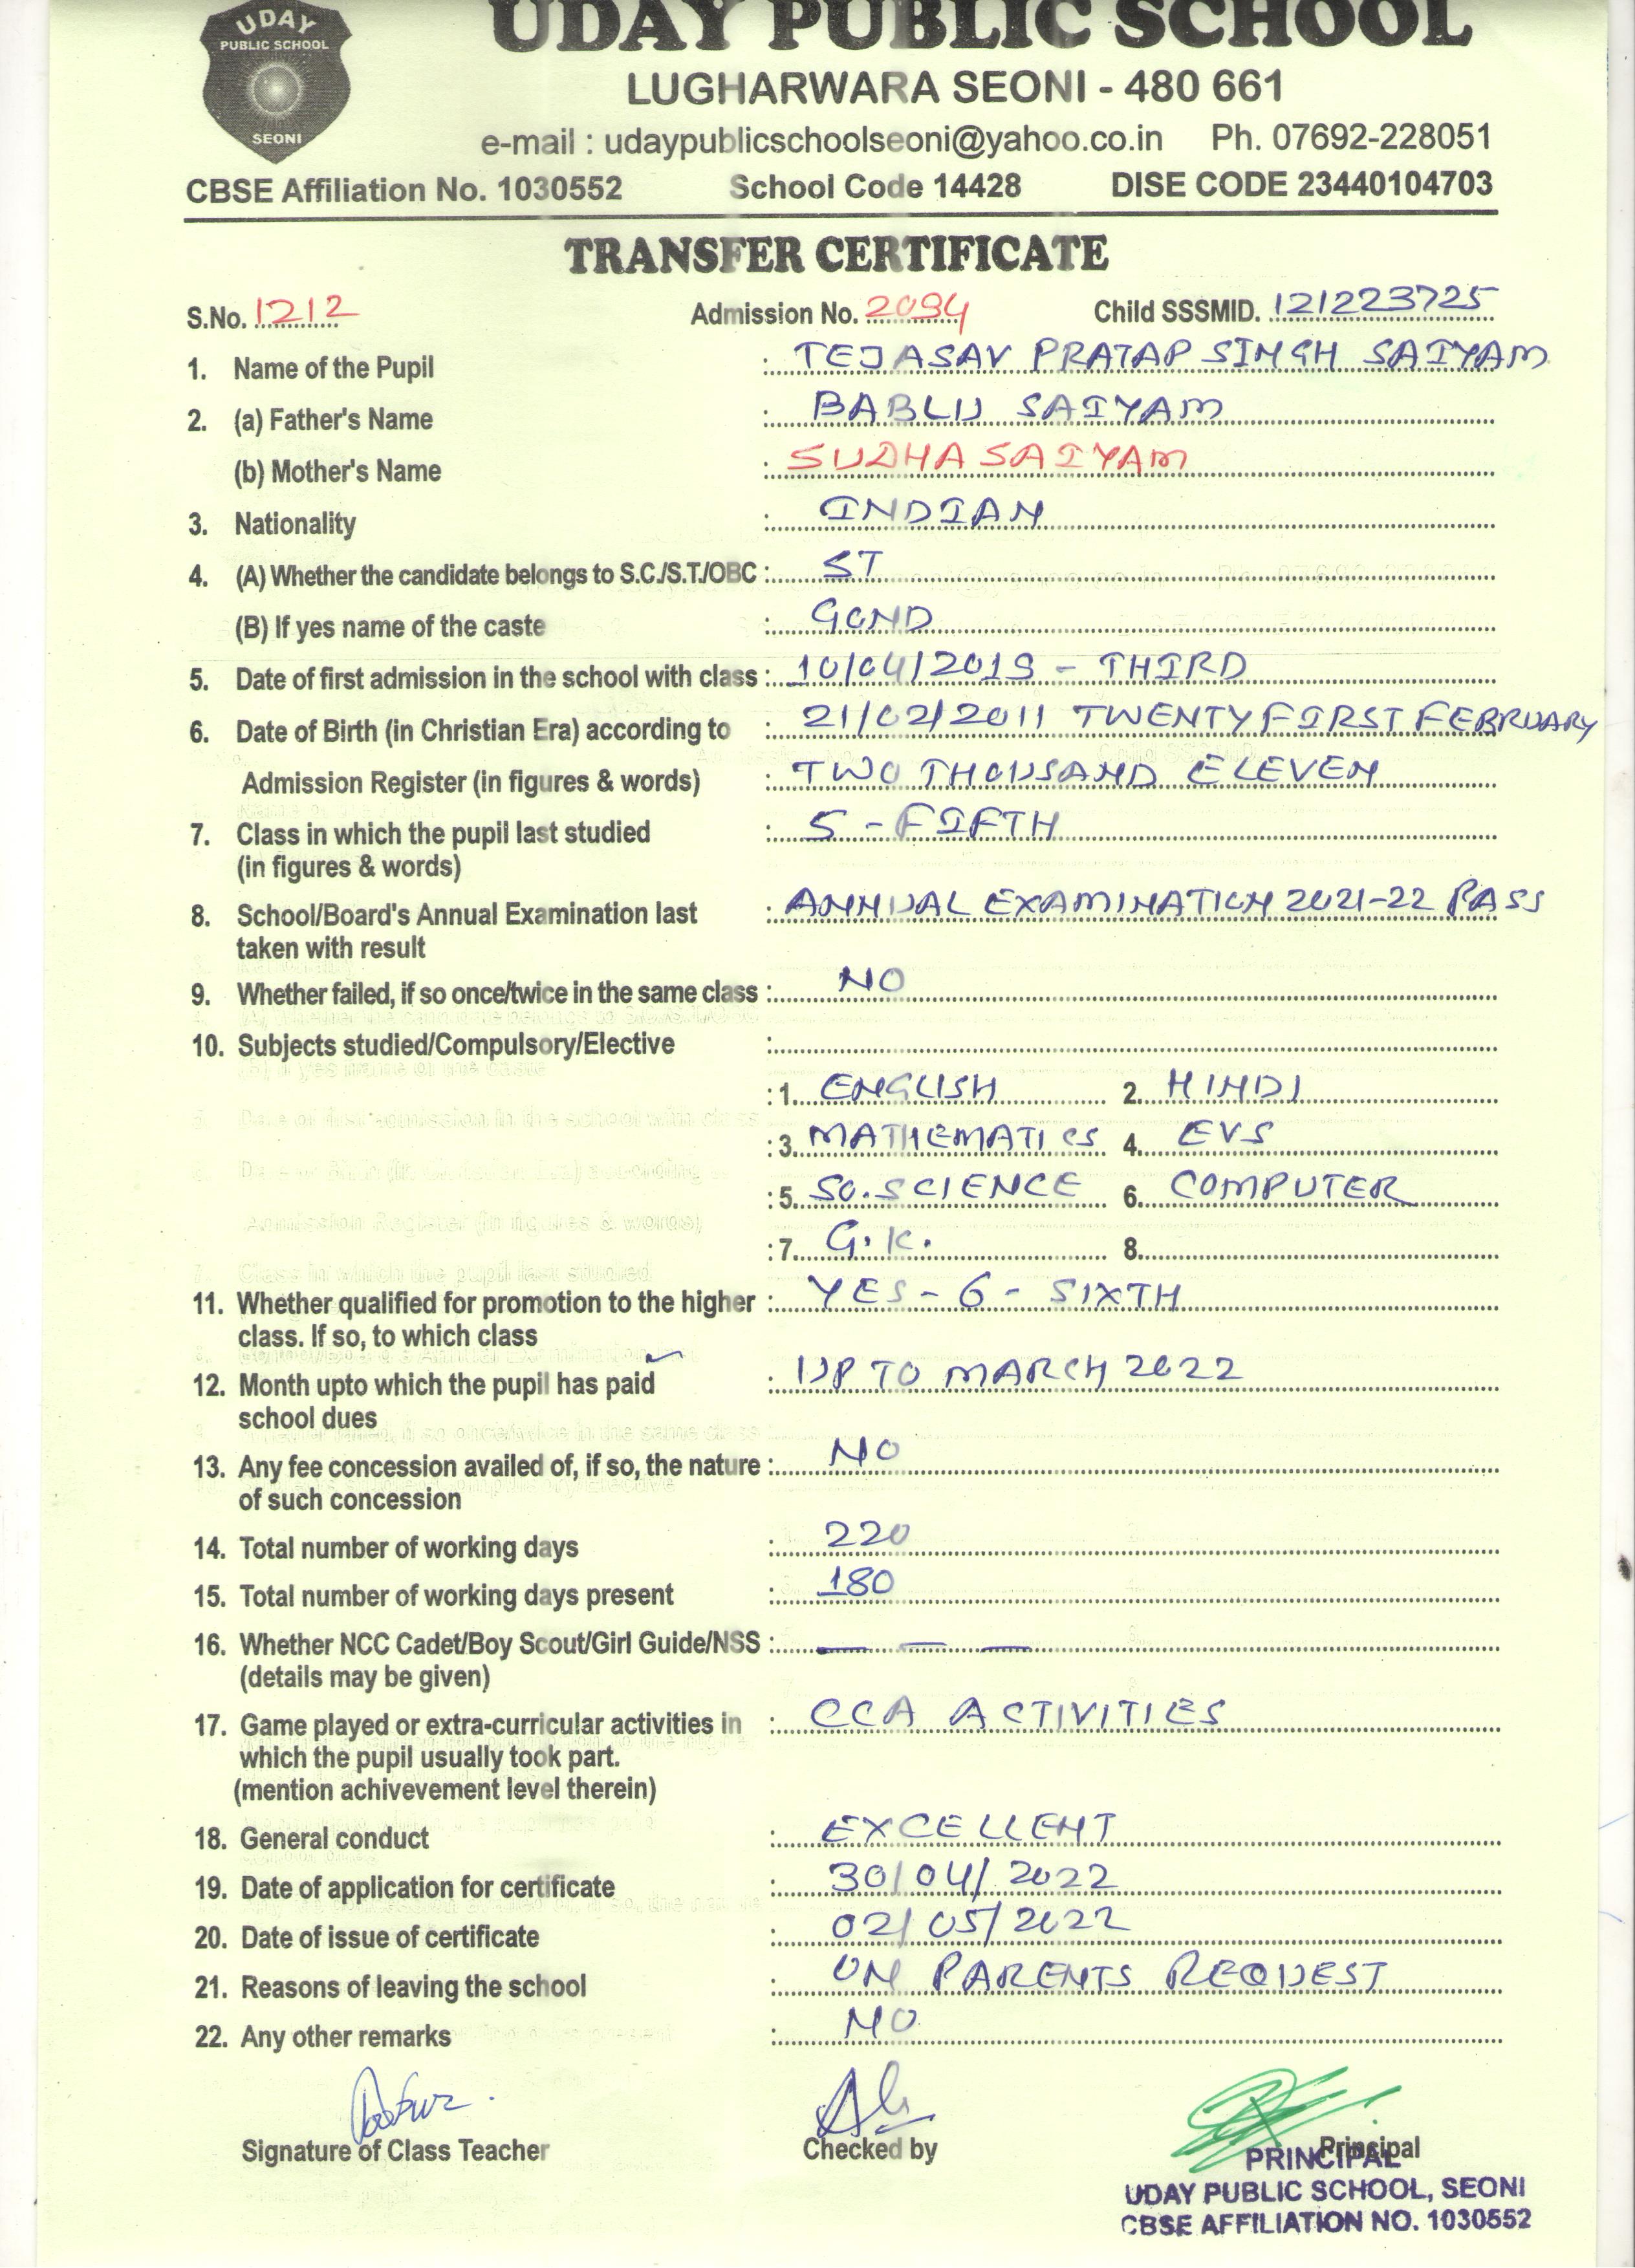 UDAY
PUBLIC SCHOOL
SEONI
UDAY PUBLIC SCHOOL
LUGHARWARA SEONI - 480 661
e-mail : udaypublicschoolseoni@yahoo.co.in Ph. 07692-228051
CBSE Affiliation No. 1030552 School Code 14428 DISE CODE 23440104703
TRANSFER CERTIFICATE
S.No. 1212 Admission No. 2094 Child SSSMID. 121223725
1. Name of the Pupil : TEJASAV PRATAP SINGH SAIYAM
2. (a) Father's Name : BABLU SAIYAM
(b) Mother's Name : SUDHA SAIYAM
3. Nationality : INDIAN
4. (A) Whether the candidate belongs to S.C./S.T./OBC : ST
(B) If yes name of the caste : GOND
5. Date of first admission in the school with class : 10/04/2019 - THIRD
6. Date of Birth (in Christian Era) according to : 21/02/2011 TWENTY FIRST FEBRUARY
Admission Register (in figures & words) : TWO THOUSAND ELEVEN
7. Class in which the pupil last studied : 5 - FIFTH
(in figures & words)
8. School/Board's Annual Examination last : ANNUAL EXAMINATION 2021-22 PASS
taken with result
9. Whether failed, if so once/twice in the same class : NO
10. Subjects studied/Compulsory/Elective :
: 1. ENGLISH 2. HINDI
: 3. MATHEMATICS 4. EVS
: 5. SO.SCIENCE 6. COMPUTER
: 7. G.K. 8.
11. Whether qualified for promotion to the higher : YES - 6 - SIXTH
class. If so, to which class
12. Month upto which the pupil has paid : UP TO MARCH 2022
school dues
13. Any fee concession availed of, if so, the nature : NO
of such concession
14. Total number of working days : 220
15. Total number of working days present : 180
16. Whether NCC Cadet/Boy Scout/Girl Guide/NSS : — — —
(details may be given)
17. Game played or extra-curricular activities in : CCA ACTIVITIES
which the pupil usually took part.
(mention achivevement level therein)
18. General conduct : EXCELLENT
19. Date of application for certificate : 30/04/2022
20. Date of issue of certificate : 02/05/2022
21. Reasons of leaving the school : ON PARENTS REQUEST
22. Any other remarks : NO
Signature of Class Teacher Checked by Principal
PRINCIPAL
UDAY PUBLIC SCHOOL, SEONI
CBSE AFFILIATION NO. 1030552